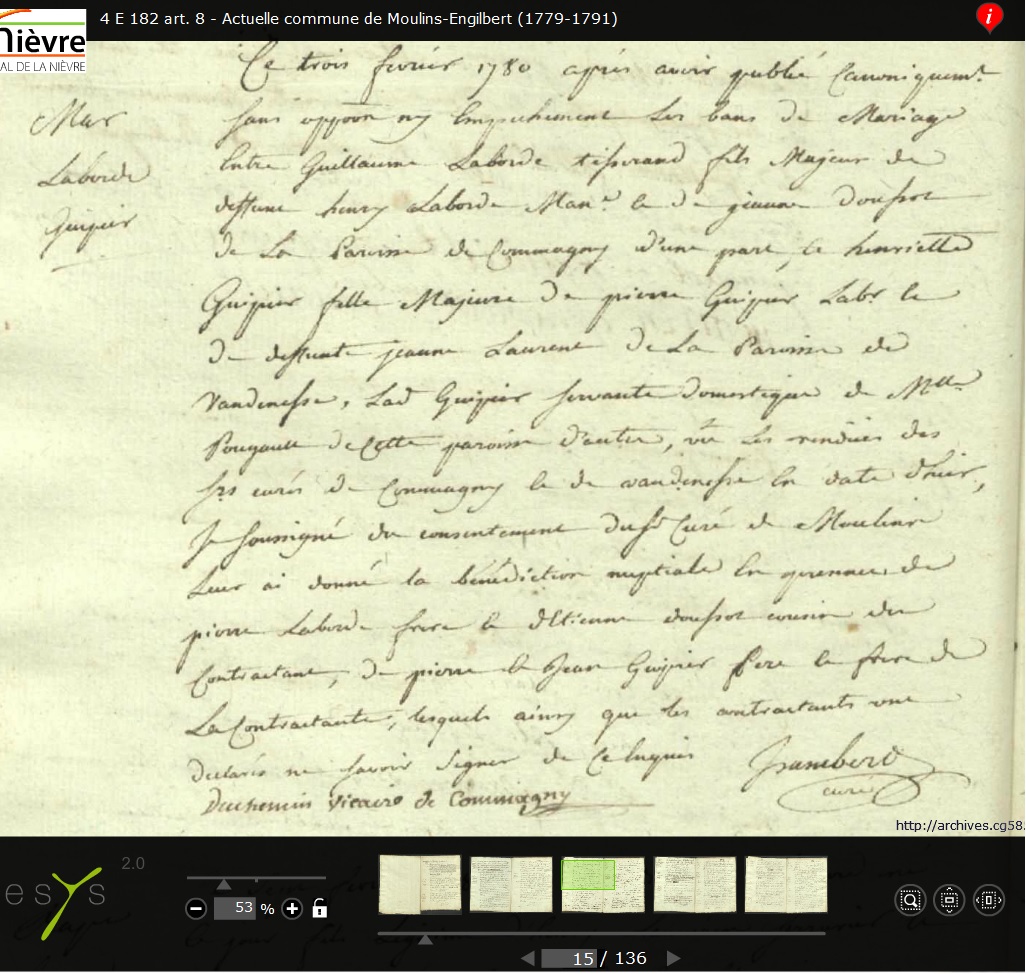 nièvre
AL DE LA NIÈVRE
4 E 182 art. 8 - Actuelle commune de Moulins-Engilbert (1779-1791)
i
Ce trois fevrier 1780 après avoir publié Canoniquemt
Mar
Laborde
Guipier
sans oppoon ny Empechement Les bans de Mariage
Entre Guillaume Laborde tisserand fils Majeur de
deffunt henry Laborde Mane. et de jeanne Doussot
de La Paroisse de Commagny d'une part, et henriette
Guipier fille Majeure De pierre Guipier Labr et
de deffunte jeanne Laurent de La Paroisse de
Vandenesse, Lad Guipier servante domestique de Melle
Pougault de Cette paroisse d'autre, vu les rendues des
srs curés de Commagny et de vandenesse En date d'hier,
Je soussigné du consentement du sr Curé de Moulins
Leur ai donné la bénédiction nuptiale En presence de
pierre Laborde frere et d'Etienne doussot cousin du
Contractant, De pierre et Jean Guipier Pere et frere de
La Contractante, lesquels ainsy que les contractants ont
declarés ne savoir Signer de Ce Enquis
Duchemin Vicaire de Commagny
curé
http://archives.cg58.
esys
2.0
53 %
15 / 136